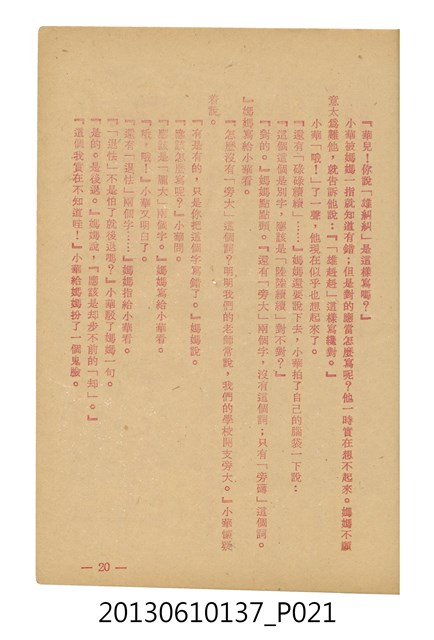 『華兒！你說「雄糾糾」是這樣寫嗎？』
小華被媽媽一指就知道有錯；但是對的應當怎麼寫呢？他一時實在想不起來。媽媽不願
意太爲難他，就告訴他說：『「雄赳赳」這樣寫纔對。』
小華「哦！」了一聲，他現在似乎也想起來了。
『還有「碌碌續續」……』媽媽還要說下去，小華拍了自己的腦袋一下說：
『這個這個是別字，應該是「陸陸續續」對不對？』
『對的。』媽媽點點頭。『還有「旁大」兩個字，沒有這個詞；只有「旁邊」這個詞。
』媽媽寫給小華看。
『怎麼沒有「旁大」這個詞？明明我們的老師常說，我們的學校開支旁大。』小華懷疑
着說。
『有是有的，只是你把這個字寫錯了。』媽媽說。
『應該怎麼寫呢？』小華問。
『應該是「龐大」兩個字。』媽媽寫給小華看。
『哦，哦！』小華又明白了。
『還有「退怯」兩個字……』媽媽指給小華看。
『「退怯」不是怕了就後退嗎？』小華駁了媽媽一句。
『是的。是後退。』媽媽說，『應該是却步不前的「却」。』
『這個我實在不知道哇！』小華給媽媽扮了一個鬼臉。
— 20 —
20130610137_P021